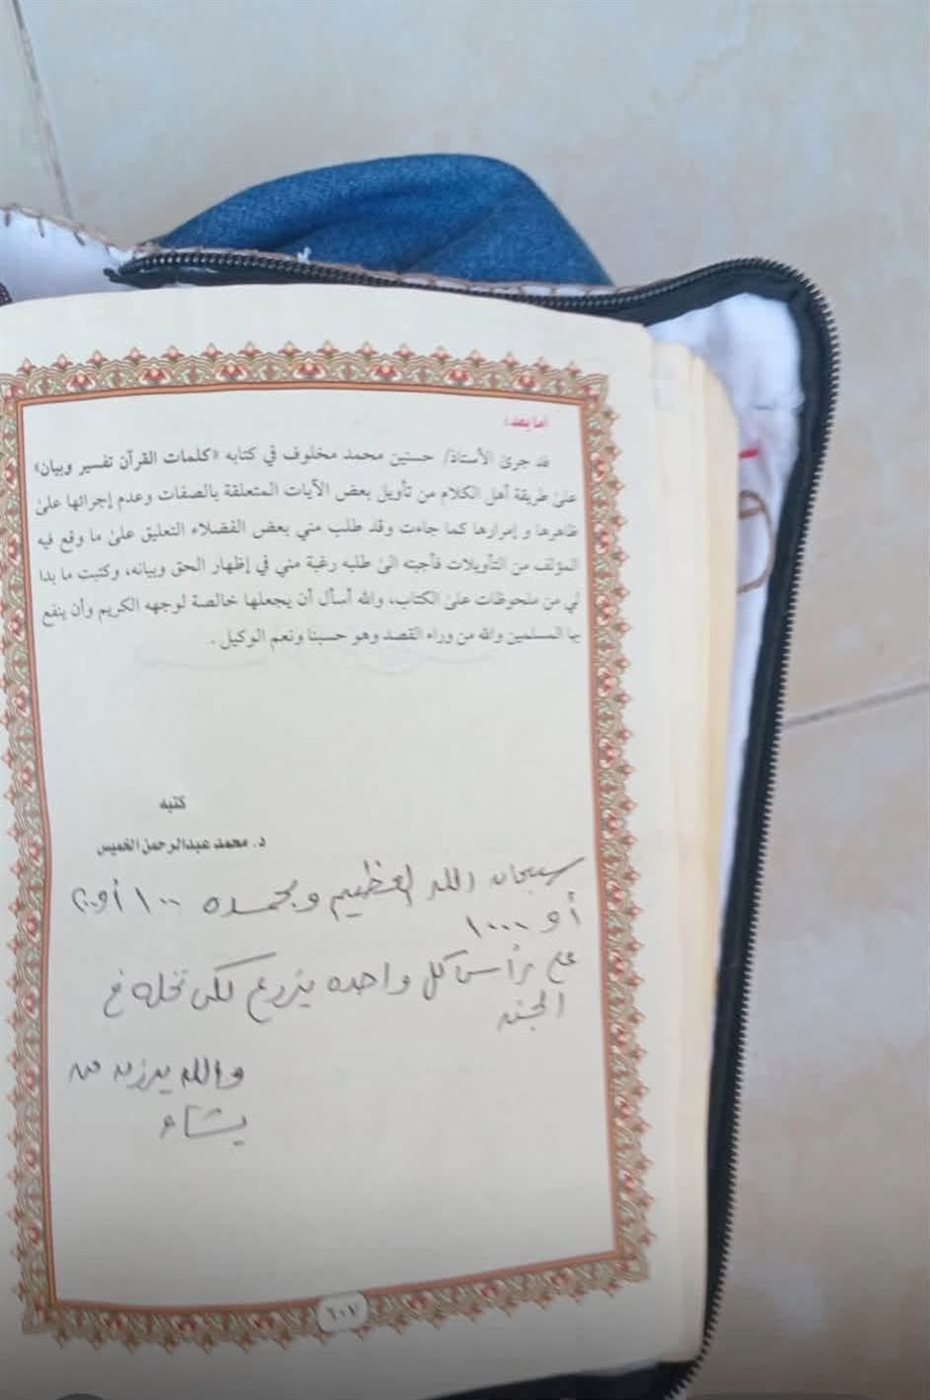 أما بعد:
قد جرى الأستاذ/ حسنين محمد مخلوف في كتابه «كلمات القرآن تفسير وبيان»
على طريقة أهل الكلام من تأويل بعض الآيات المتعلقة بالصفات وعدم إجرائها على
ظاهرها و إمرارها كما جاءت وقد طلب مني بعض الفضلاء التعليق على ما وقع فيه
المؤلف من التأويلات فأجبته الى طلبه رغبة مني في إظهار الحق وبيانه، وكتبت ما بدا
لي من ملحوظات على الكتاب، والله أسأل أن يجعلها خالصة لوجهه الكريم وأن ينفع
بها المسلمين والله من وراء القصد وهو حسبنا ونعم الوكيل .
كتبه
د. محمد عبدالرحمن الخميس
سبحان الله العظيم وبحمده ١٠٠ أو ٢٠٠
أو ١٠٠٠
على رأس كل واحده يزرع لكى نخله في
الجنه
والله يرزق من
يشاء
٦٠٧